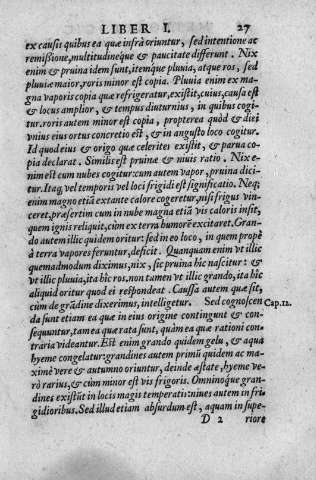 LIBER I. 27
ex causis quibus ea quæ infrà oriuntur, sed intentione ac
remissione, multitudineque & paucitate differunt. Nix
enim & pruina idem sunt, itemque pluuia, atque ros, sed
pluuiæ maior, roris minor est copia. Pluuia enim ex ma-
gna vaporis copia quæ refrigeratur, existit, cuius, causa est
& locus amplior, & tempus diuturnius, in quibus cogi-
tur. roris autem minor est copia, propterea quòd & diei
vnius eius ortus concretio est, & in angusto loco cogitur.
Id quod eius & origo quæ celeriter existit, & parua co-
pia declarat. Similis est pruinæ & niuis ratio. Nix e-
nim est cum nubes cogitur: cum autem vapor, pruina dici-
tur. Itaq; vel temporis vel loci frigidi est significatio. Neq;
enim magno etiā extante calore cogeretur, nisi frigus vin-
ceret, præsertim cum in nube magna etiā vis caloris insit,
quem ignis reliquit, cùm ex terra humorē excitaret. Gran-
do autem illic quidem oritur: sed in eo loco, in quem propè
à terra vapores feruntur, deficit. Quanquam enim vt illic
quemadmodum diximus, nix, sic pruina hic nascitur: &
vt illic pluuia, ita hic ros, non tamen vt illic grando, ita hic
aliquid oritur quod ei respondeat. Caussa autem quæ sit,
cùm de grādine dixerimus, intelligetur. Sed cognoscen Cap.12.
da sunt etiam ea quæ in eius origine contingunt & con-
sequuntur, tam ea quæ rata sunt, quàm ea quæ rationi con-
traria videantur. Est enim grando quidem gelu, & aqua
hyeme congelatur: grandines autem primū quidem ac ma-
ximè vere & autumno oriuntur, deinde æstate, hyeme ve-
rò rarius, & cùm minor est vis frigoris. Omninoque gran-
dines existūt in locis magis temperatis: niues autem in fri-
gidioribus. Sed illud etiam absurdum est, aquam in supe-
D 2 riore